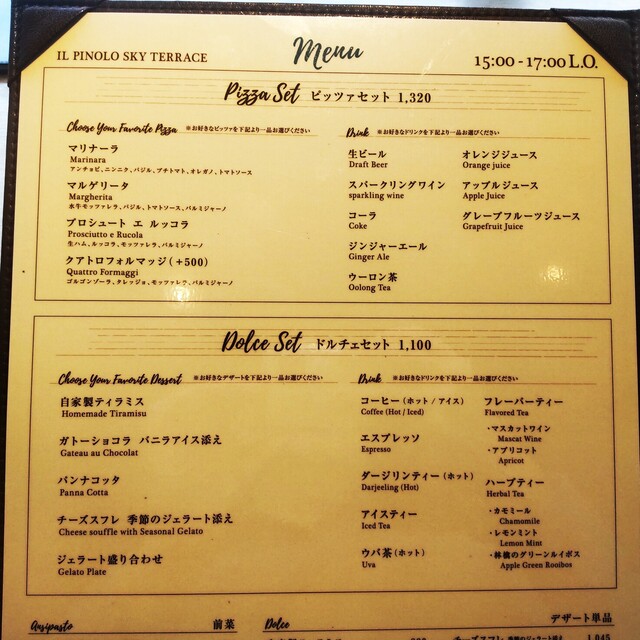 IL PINOLO SKY TERRACE
Menu
15:00 - 17:00 L.O.
Pizza Set ピッツァセット 1,320
Choose Your Favorite Pizza ※お好きなピッツァを下記より一品お選びください
マリナーラ
Marinara
アンチョビ、ニンニク、バジル、プチトマト、オレガノ、トマトソース
マルゲリータ
Margherita
水牛モッツァレラ、バジル、トマトソース、パルミジャーノ
プロシュート エ ルッコラ
Prosciutto e Rucola
生ハム、ルッコラ、モッツァレラ、パルミジャーノ
クアトロフォルマッジ(+500)
Quattro Formaggi
ゴルゴンゾーラ、タレッジョ、モッツァレラ、パルミジャーノ
Drink ※お好きなドリンクを下記より一品お選びください
生ビール
Draft Beer
スパークリングワイン
sparkling wine
コーラ
Coke
ジンジャーエール
Ginger Ale
ウーロン茶
Oolong Tea
オレンジジュース
Orange juice
アップルジュース
Apple Juice
グレープフルーツジュース
Grapefruit Juice
Dolce Set ドルチェセット 1,100
Choose Your Favorite Dessert ※お好きなデザートを下記より一品お選びください
自家製ティラミス
Homemade Tiramisu
ガトーショコラ バニラアイス添え
Gateau au Chocolat
パンナコッタ
Panna Cotta
チーズスフレ 季節のジェラート添え
Cheese souffle with Seasonal Gelato
ジェラート盛り合わせ
Gelato Plate
Drink ※お好きなドリンクを下記より一品お選びください
コーヒー(ホット / アイス)
Coffee (Hot / Iced)
エスプレッソ
Espresso
ダージリンティー(ホット)
Darjeeling (Hot)
アイスティー
Iced Tea
ウバ茶(ホット)
Uva
フレーバーティー
Flavored Tea
・マスカットワイン
Mascat Wine
・アプリコット
Apricot
ハーブティー
Herbal Tea
・カモミール
Chamomile
・レモンミント
Lemon Mint
・林檎のグリーンルイボス
Apple Green Rooibos
Antipasto 前菜
Dolce デザート単品
チーズスフレ 1,045